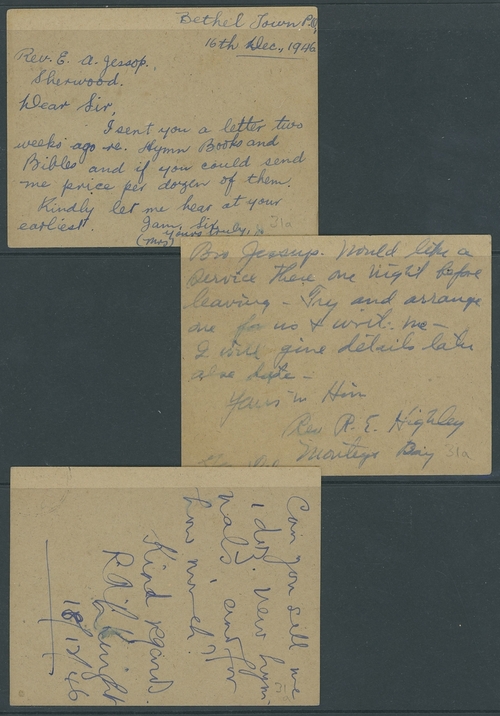 Bethel Town P.O.
16th Dec., 1946
Rev. E. A. Jessop.,
Sherwood.
Dear Sir,
I sent you a letter two
weeks ago re. Hymn Books and
Bibles and if you could send
me price per dozen of them.
Kindly let me hear at your
earliest. I am, Sir,
Yours truly,
(Mrs)
31a
Bro. Jessup. Would like a
service there one night before
leaving - Try and arrange
one for us & write me -
I will give details later
also date -
Yours in Him
Rev R. E. Highley
Montego Bay 31a
Can you sell me
1 doz. new hym-
nals and for
how much?
Kind regards.
18/12/46
31a